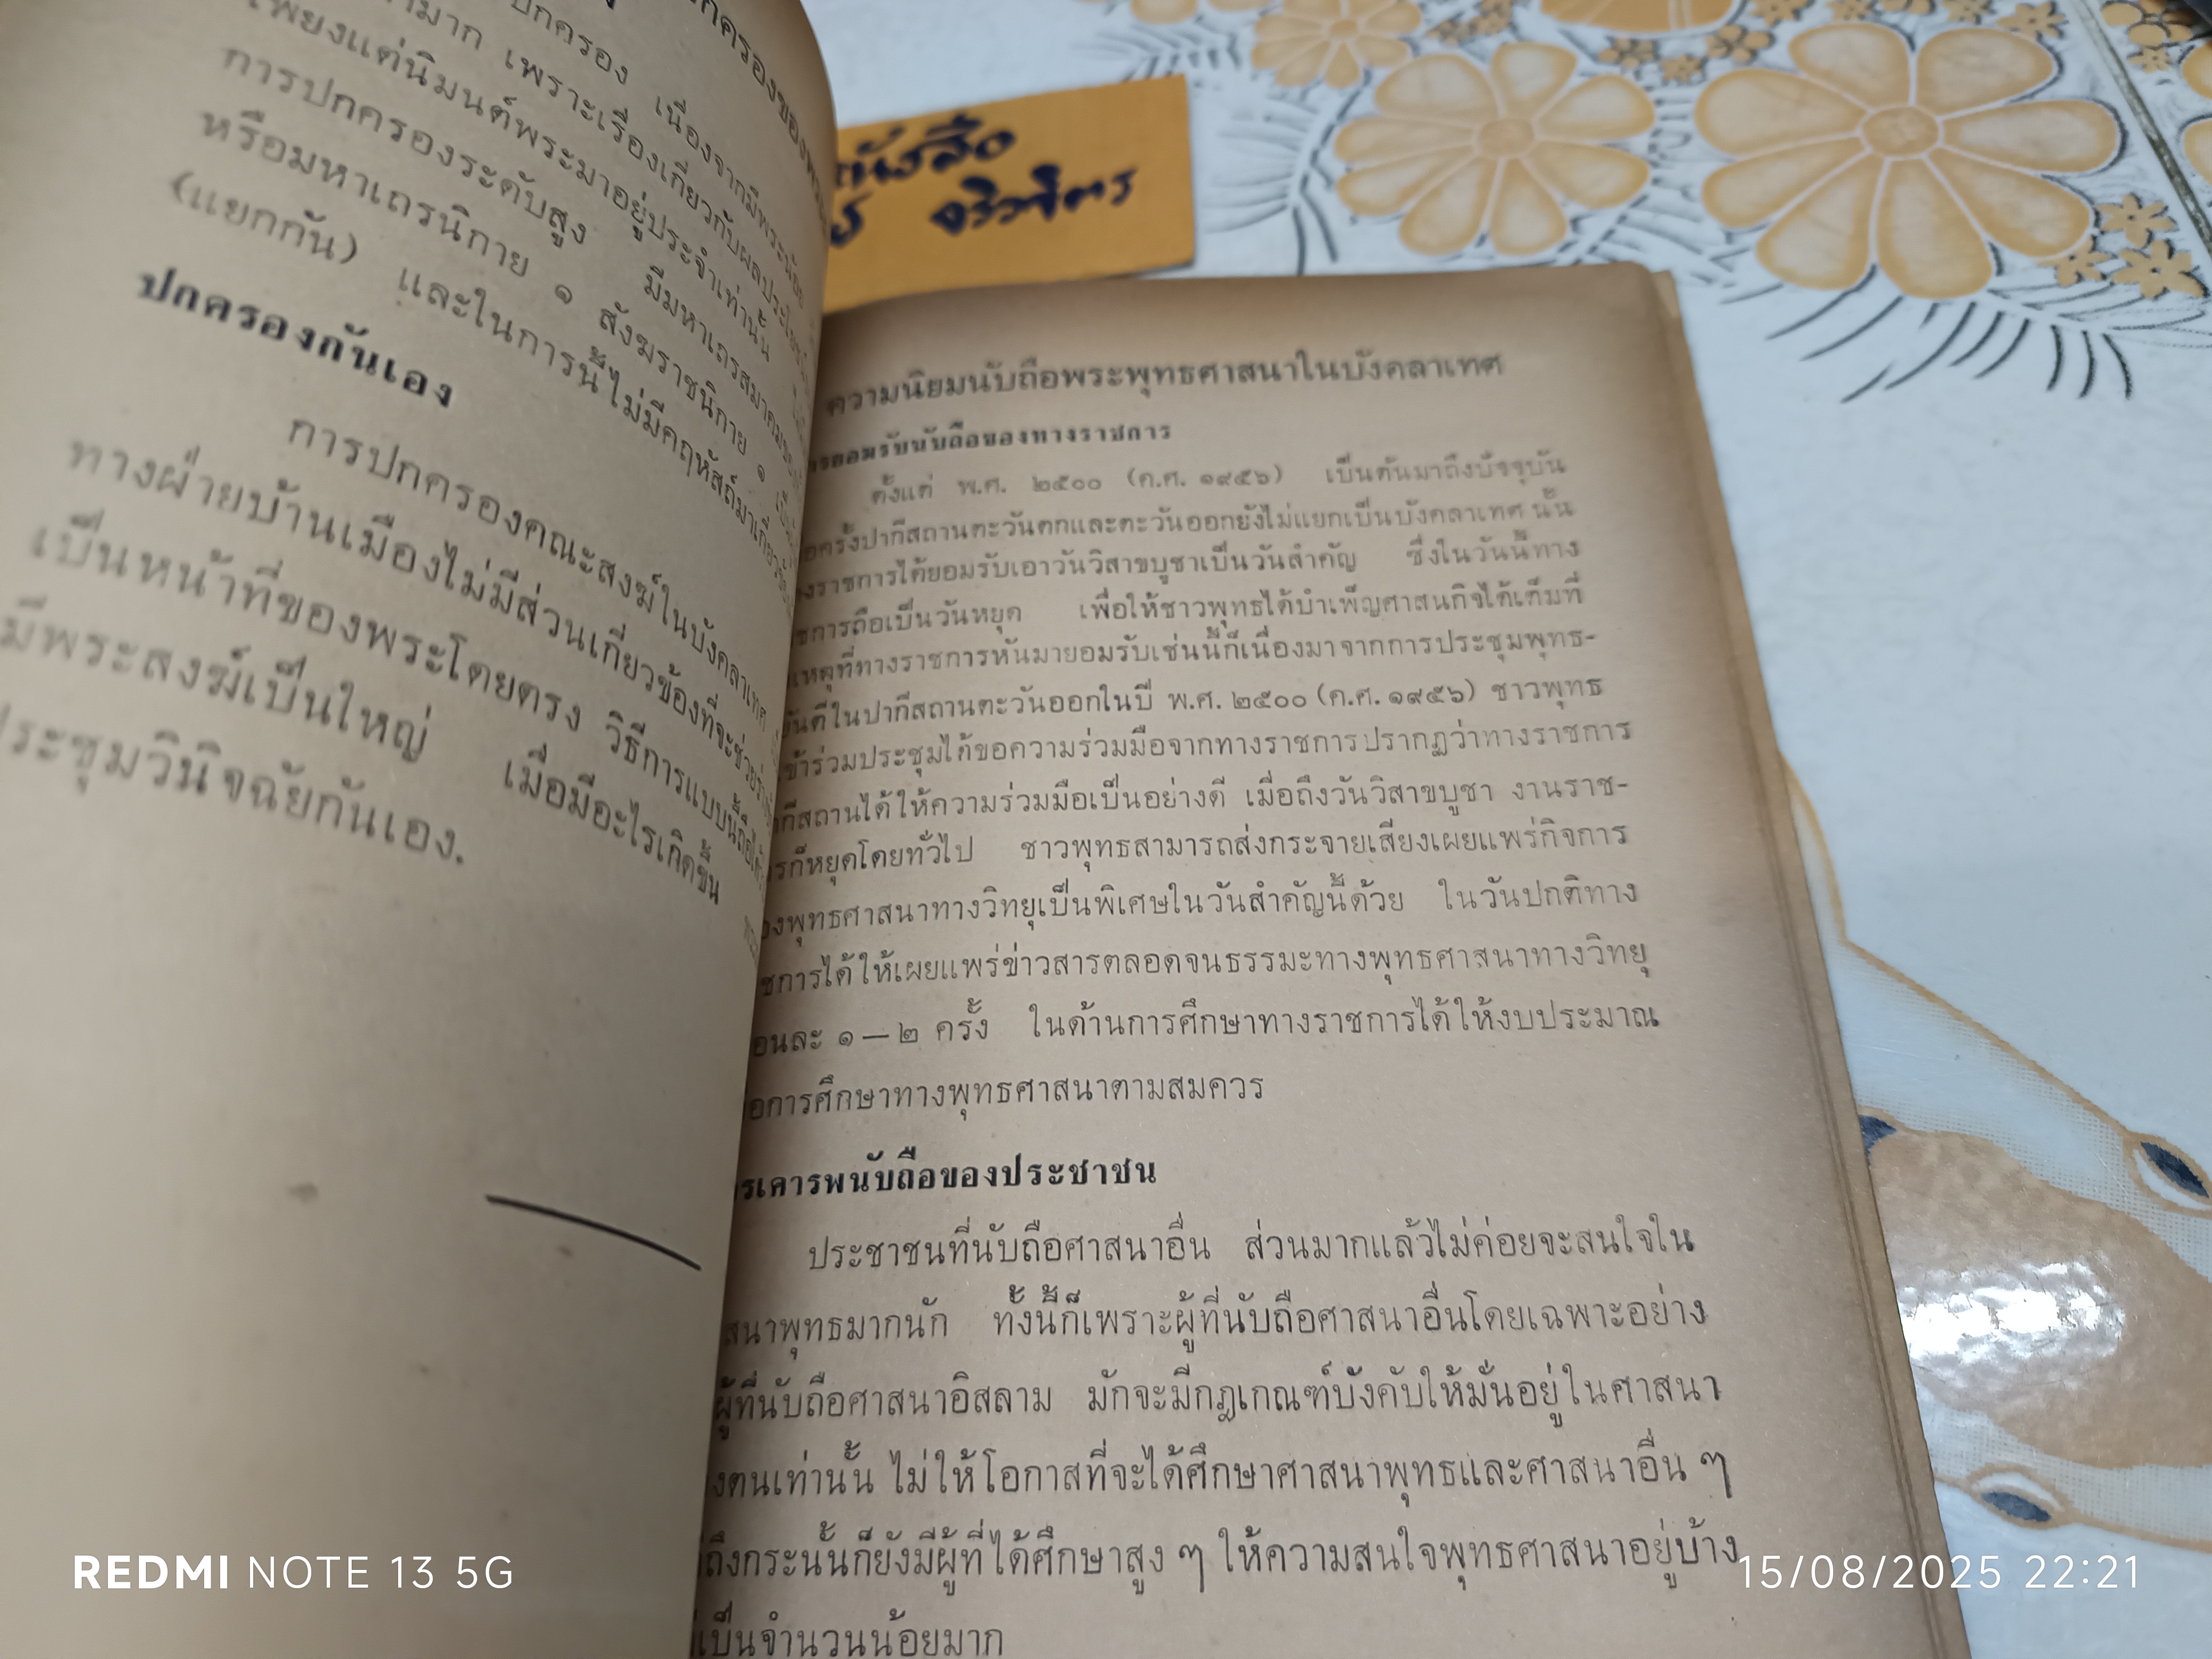 ปกครองของพระ
ปกครอง เนื่องจากมีพระน้อย
มาก เพราะเรื่องเกี่ยวกับผลประโยชน์
เพียงแต่นิมนต์พระมาอยู่ประจำเท่านั้น
การปกครองระดับสูง มีมหาเถรสมาคม
หรือมหาเถรนิกาย ๑ สังฆราชนิกาย ๑
(แยกกัน) และในการนี้ไม่มีคฤหัสถ์มาเกี่ยวข้อง
ปกครองกันเอง
การปกครองคณะสงฆ์ในบังคลาเทศ
ทางฝ่ายบ้านเมืองไม่มีส่วนเกี่ยวข้องที่จะช่วย
เป็นหน้าที่ของพระโดยตรง วิธีการแบบนี้ถือ
มีพระสงฆ์เป็นใหญ่ เมื่อมีอะไรเกิดขึ้น
ประชุมวินิจฉัยกันเอง.
หนังสือ
จริวจิตร
ความนิยมนับถือพระพุทธศาสนาในบังคลาเทศ
การยอมรับนับถือของทางราชการ
ตั้งแต่ พ.ศ. ๒๕๐๐ (ค.ศ. ๑๙๕๖) เป็นต้นมาถึงปัจจุบัน
ครั้งปากีสถานตะวันตกและตะวันออกยังไม่แยกเป็นบังคลาเทศ นั้น
ทางราชการได้ยอมรับเอาวันวิสาขบูชาเป็นวันสำคัญ ซึ่งในวันนี้ทาง
ราชการถือเป็นวันหยุด เพื่อให้ชาวพุทธได้บำเพ็ญศาสนกิจได้เต็มที่
เหตุที่ทางราชการหันมายอมรับเช่นนี้ก็เนื่องมาจากการประชุมพุทธ-
ชยันตีในปากีสถานตะวันออกในปี พ.ศ. ๒๕๐๐ (ค.ศ. ๑๙๕๖) ชาวพุทธ
เข้าร่วมประชุมได้ขอความร่วมมือจากทางราชการปรากฏว่าทางราชการ
ปากีสถานได้ให้ความร่วมมือเป็นอย่างดี เมื่อถึงวันวิสาขบูชา งานราช-
การก็หยุดโดยทั่วไป ชาวพุทธสามารถส่งกระจายเสียงเผยแพร่กิจการ
ของพุทธศาสนาทางวิทยุเป็นพิเศษในวันสำคัญนี้ด้วย ในวันปกติทาง
ราชการได้ให้เผยแพร่ข่าวสารตลอดจนธรรมะทางพุทธศาสนาทางวิทยุ
เดือนละ ๑ — ๒ ครั้ง ในด้านการศึกษาทางราชการได้ให้งบประมาณ
เพื่อการศึกษาทางพุทธศาสนาตามสมควร
การเคารพนับถือของประชาชน
ประชาชนที่นับถือศาสนาอื่น ส่วนมากแล้วไม่ค่อยจะสนใจใน
ศาสนาพุทธมากนัก ทั้งนี้ก็เพราะผู้ที่นับถือศาสนาอื่นโดยเฉพาะอย่าง
ผู้ที่นับถือศาสนาอิสลาม มักจะมีกฎเกณฑ์บังคับให้มั่นอยู่ในศาสนา
ของตนเท่านั้น ไม่ให้โอกาสที่จะได้ศึกษาศาสนาพุทธและศาสนาอื่น ๆ
ถึงกระนั้นก็ยังมีผู้ที่ได้ศึกษาสูง ๆ ให้ความสนใจพุทธศาสนาอยู่บ้าง
เป็นจำนวนน้อยมาก
REDMI NOTE 13 5G
15/08/2025 22:21